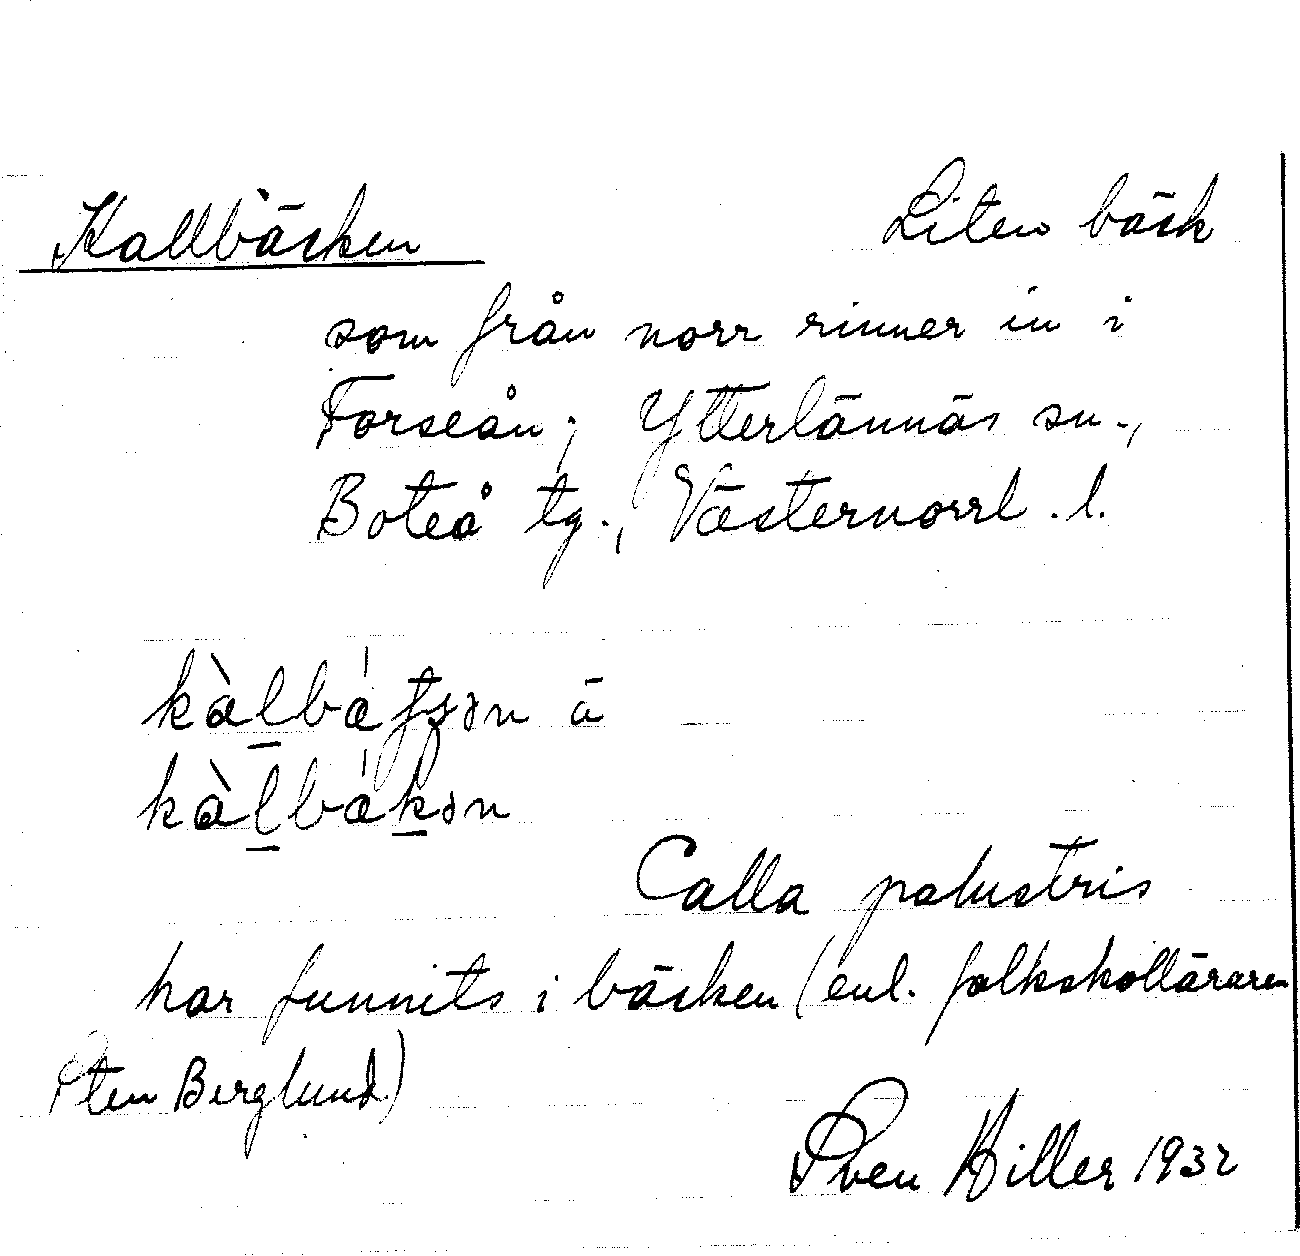 Kallbäcken Liten bäck
som från norr rinner in i
Forseån; Ytterlännäs sn.,
Boteå tg., Västernorrl. l.
kàl̠bátsən ä
kàl̠bák̠ən
Calla palustris
har funnits i bäcken (enl. folkskolläraren
Sten Berglund)
Sven Hiller 1932